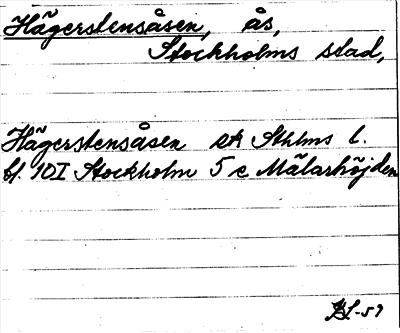 Hägerstensåsen, ås,
Stockholms stad,
Hägerstensåsen ek Sthlms l.
bl. 10I Stockholm 5 c Mälarhöjden
-59